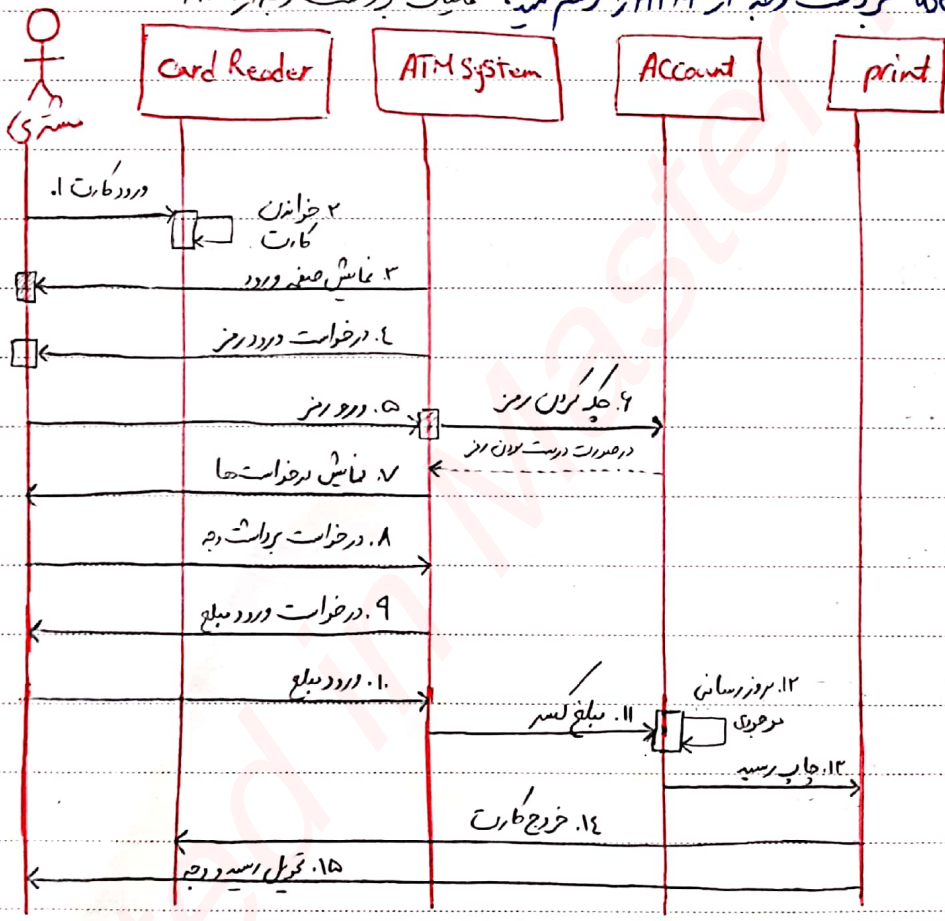 دریافت وجه از ATM را رسم کنید.
Card Reader
ATM System
Account
print
مشتری
۱. ورود کارت
۲ خواندن
کارت
۳. نمایش صفحه ورود
٤. درخواست ورود رمز
۵. ورود رمز
۶. چک کردن رمز
در صورت درست بودن رمز
۷. نمایش درخواست‌ها
۸. درخواست برداشت وجه
۹. درخواست ورود مبلغ
۱۰. ورود مبلغ
۱۱. مبلغ کسر
۱۲. بروزرسانی
موجودی
۱۳. چاپ رسید
۱٤. خروج کارت
۱۵. تحویل رسید و وجه
Master
ed in